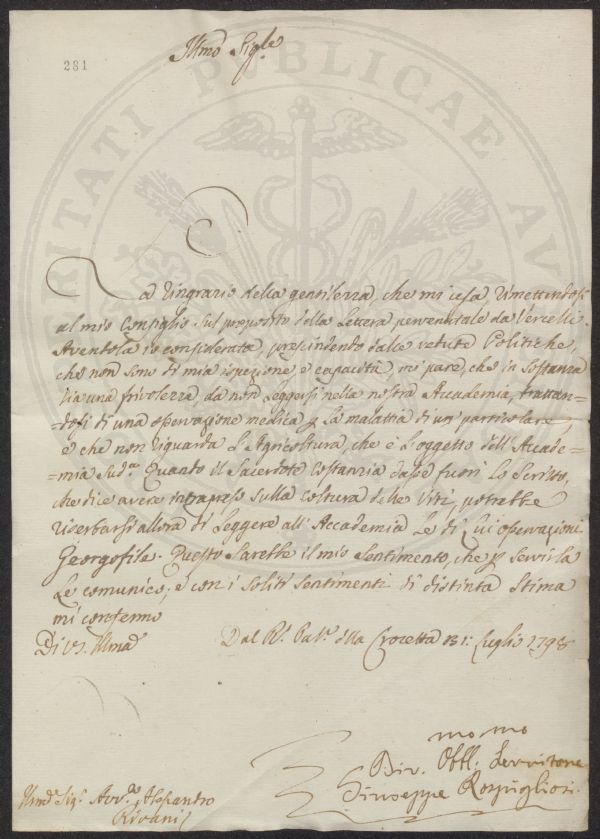 281
Illmo Sigre
La ringrazio della gentilezza, che mi usa, rimettendosi
al mio Consiglio sul proposito della Lettera pervenutale da Vercelli.
Avendola io considerata, prescindendo dalle vedute Politiche,
che non sono di mia ispezione e capacità, mi pare, che in sostanza
sia una frivolezza da non leggersi nella nostra Accademia, trattan-
=dosi di una operazione medica p. la malattia di un particolare,
e che non riguarda l'Agricoltura, che è l'oggetto dell'Accade-
=mia sudta. Quando il Sacerdote Costanzia dasse fuori lo Scritto,
che dice avere intrapreso sulla coltura delle Viti, potrebbe
riserbarsi allora di leggere all'Accademia le di lui operazioni
Georgofile. Questo sarebbe il mio sentimento, che p. servirla
le comunico; e con i soliti sentimenti di distinta stima
mi confermo
Di VS. Illma
Dal R. Pal. della Crocetta 31. Luglio 1798
Div. Obbl. Servitore
mo mo
Giuseppe Rospigliosi
Illmo Sig. Avvto Alessandro
Rivani